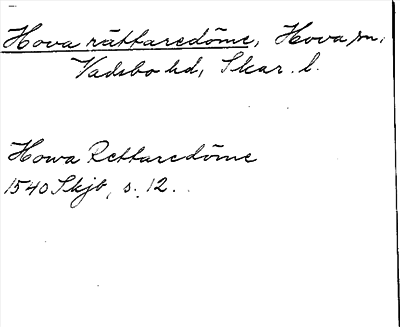 Hova rättaredöme, Hova sn,
Vadsbo hd, Skar. l.
Howa Rettaredöme
1540 Skjb, s. 12.